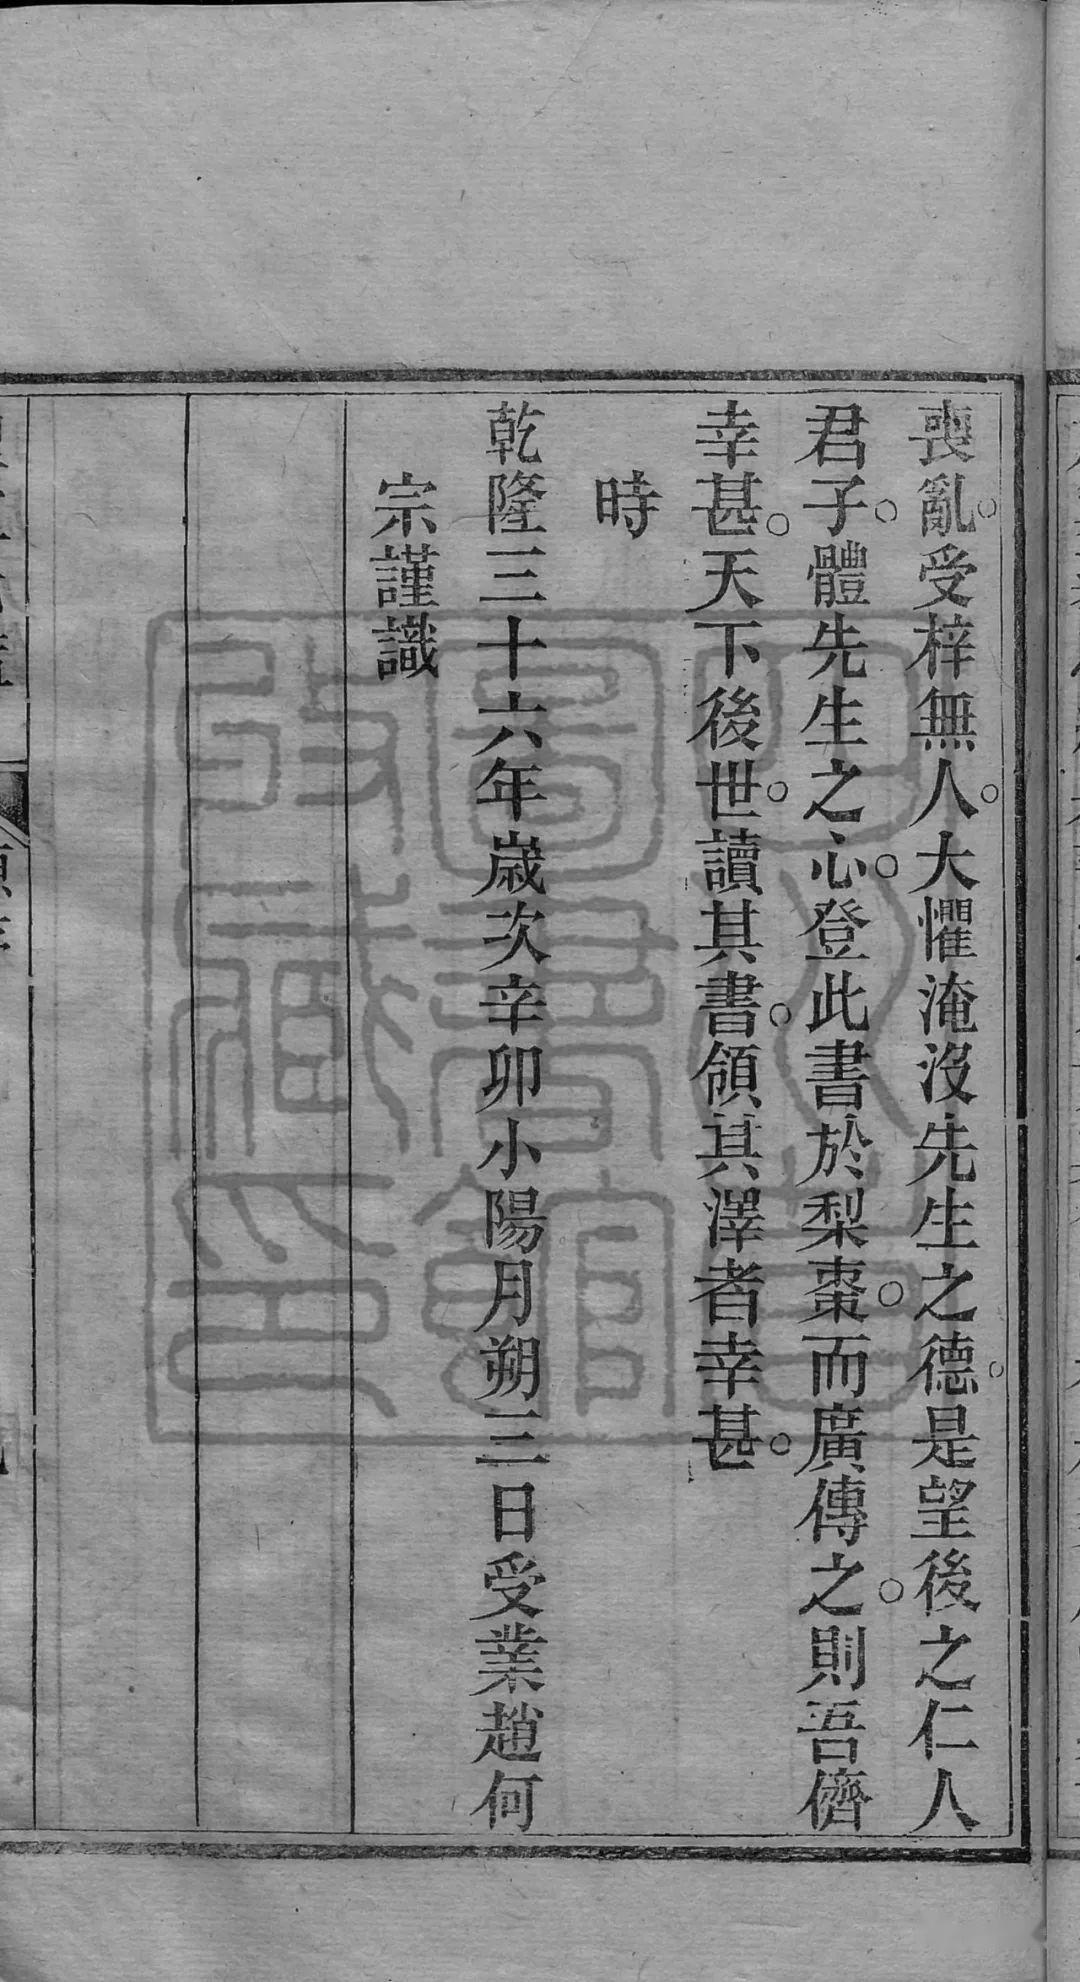 喪亂受梓無人大懼淹沒先生之德是望後之仁人
君子體先生之心登此書於梨棗而廣傳之則吾儕
幸甚天下後世讀其書領其澤者幸甚
時
乾隆三十六年歲次辛卯小陽月朔三日受業趙何
宗謹識